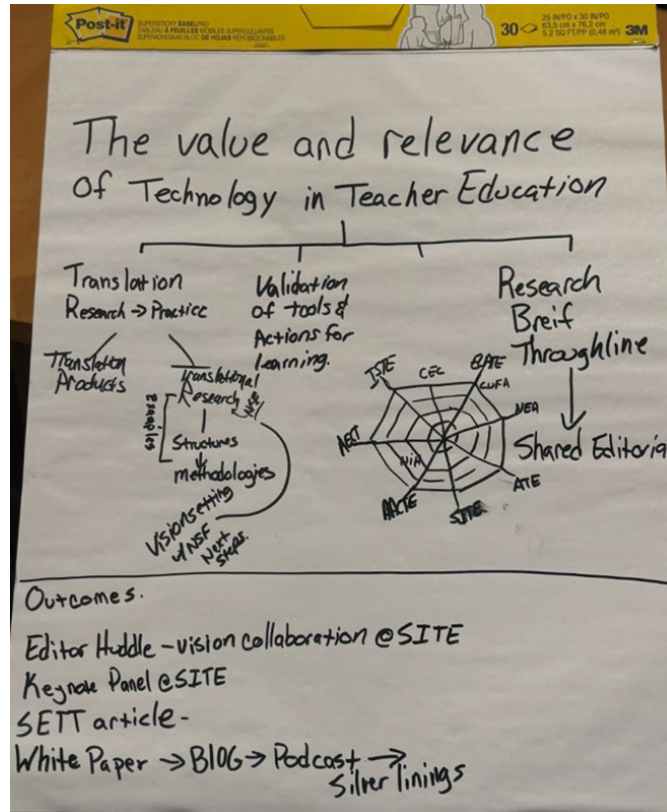 Post-it
SUPERSTICKY EASELPAD
TABLEAU À FEUILLES MOBILES SUPERCOLLANTES
SUPERADHESIVAS BLOC DE HOJAS REPOSICIONABLES
30
25 IN/PO x 30 IN/PO
63,5 cm x 76,2 cm
5.2 SQ FT/PP (0,48 m²)
3M
The value and relevance
Of Technology in Teacher Education
Translation
Research → Practice
Translation
Products
Translational
Research
Examples
Structures
methodologies
Visionsetting
w/NSF
Next
Steps.
Validation
of tools &
Actions for
learning.
Research
Breif
Throughline
Shared Editoria
ISTE
CEC
CUFA
NEA
ATE
SITE
AACTE
AECT
Outcomes.
Editor Huddle - vision collaboration @SITE
Keynote Panel @SITE
SETT article -
White Paper → BlOG → Podcast →
Silver linings